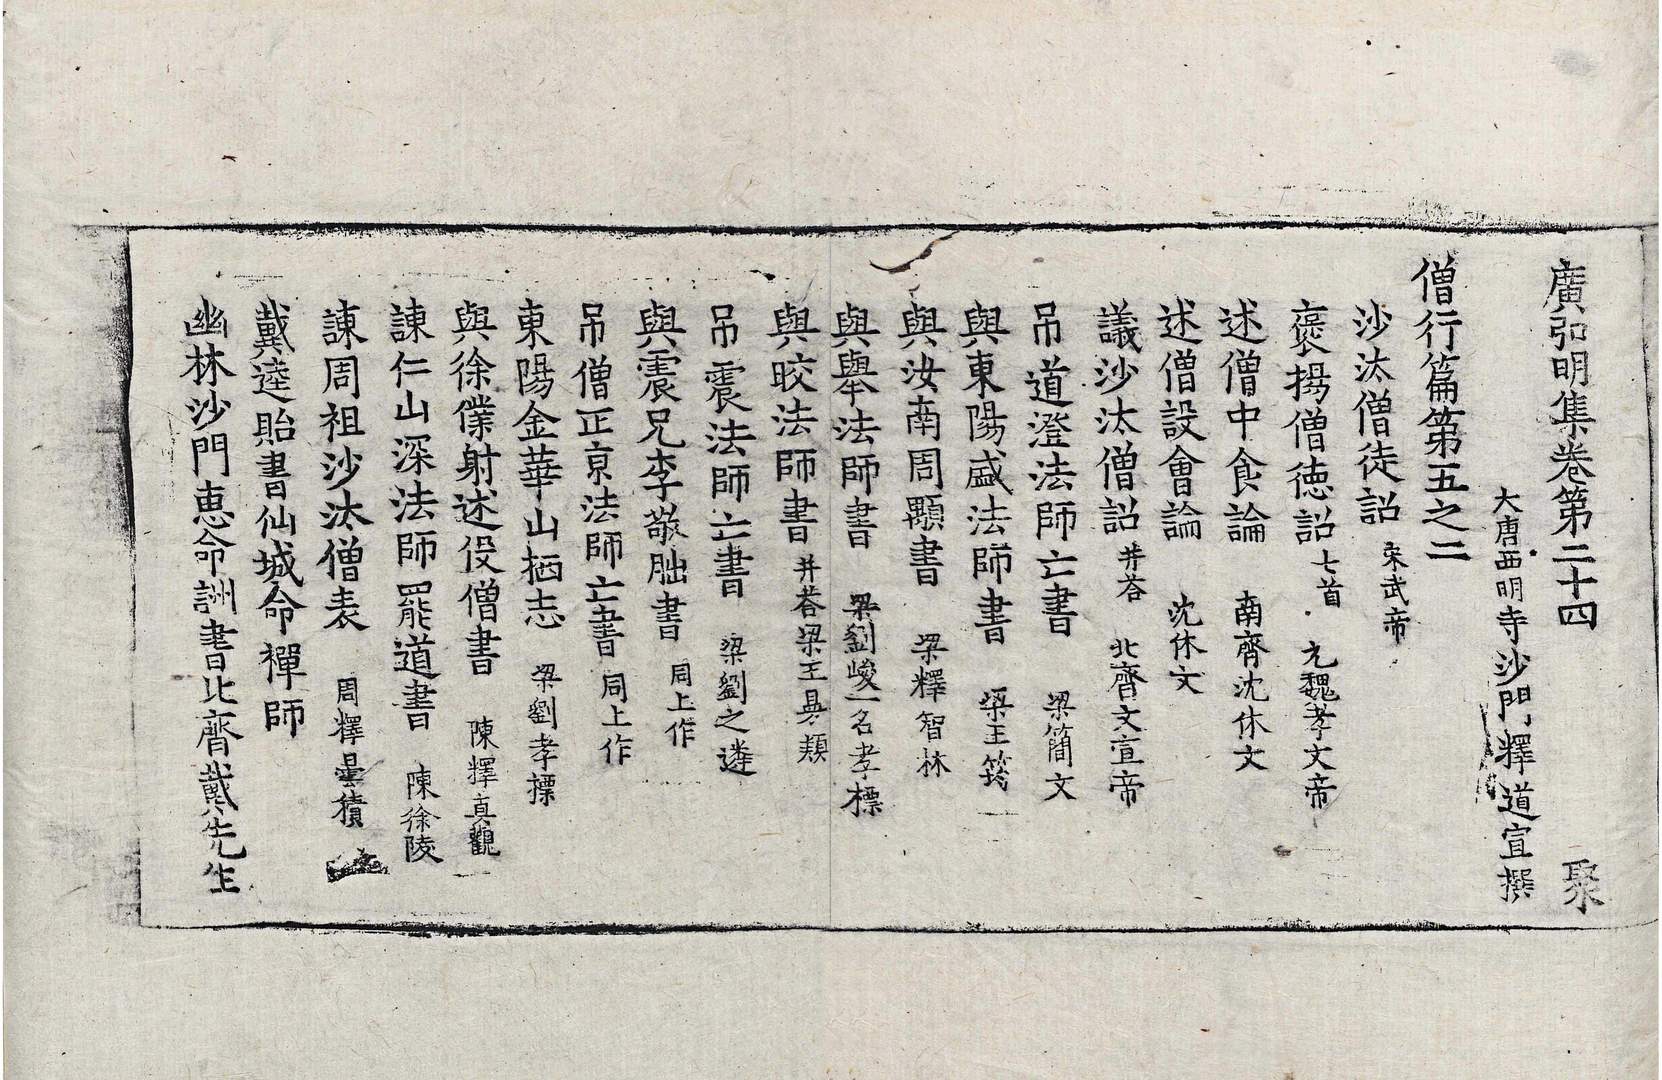 廣弘明集卷第二十四 聚
大唐西明寺沙門釋道宣撰
僧行篇第五之二
沙汰僧徒詔 宋武帝
褒揚僧德詔 七首 元魏孝文帝
述僧中食論 南齊沈休文
述僧設會論 沈休文
議沙汰僧詔 并荅 北齊文宣帝
吊道澄法師亡書 梁簡文
與東陽盛法師書 梁王筠
與汝南周顒書 梁釋智林
與舉法師書 梁劉峻一名孝標
與皎法師書 并荅梁王曼穎
吊震法師亡書 梁劉之遴
與震兄李敬朏書 同上作
吊僧正京法師亡書 同上作
東陽金華山栖志 梁劉孝標
與徐僕射述役僧書 陳釋真觀
諫仁山深法師罷道書 陳徐陵
諫周祖沙汰僧表 周釋曇積
戴逵貽書仙城命禪師
幽林沙門惠命詶書北齊戴先生